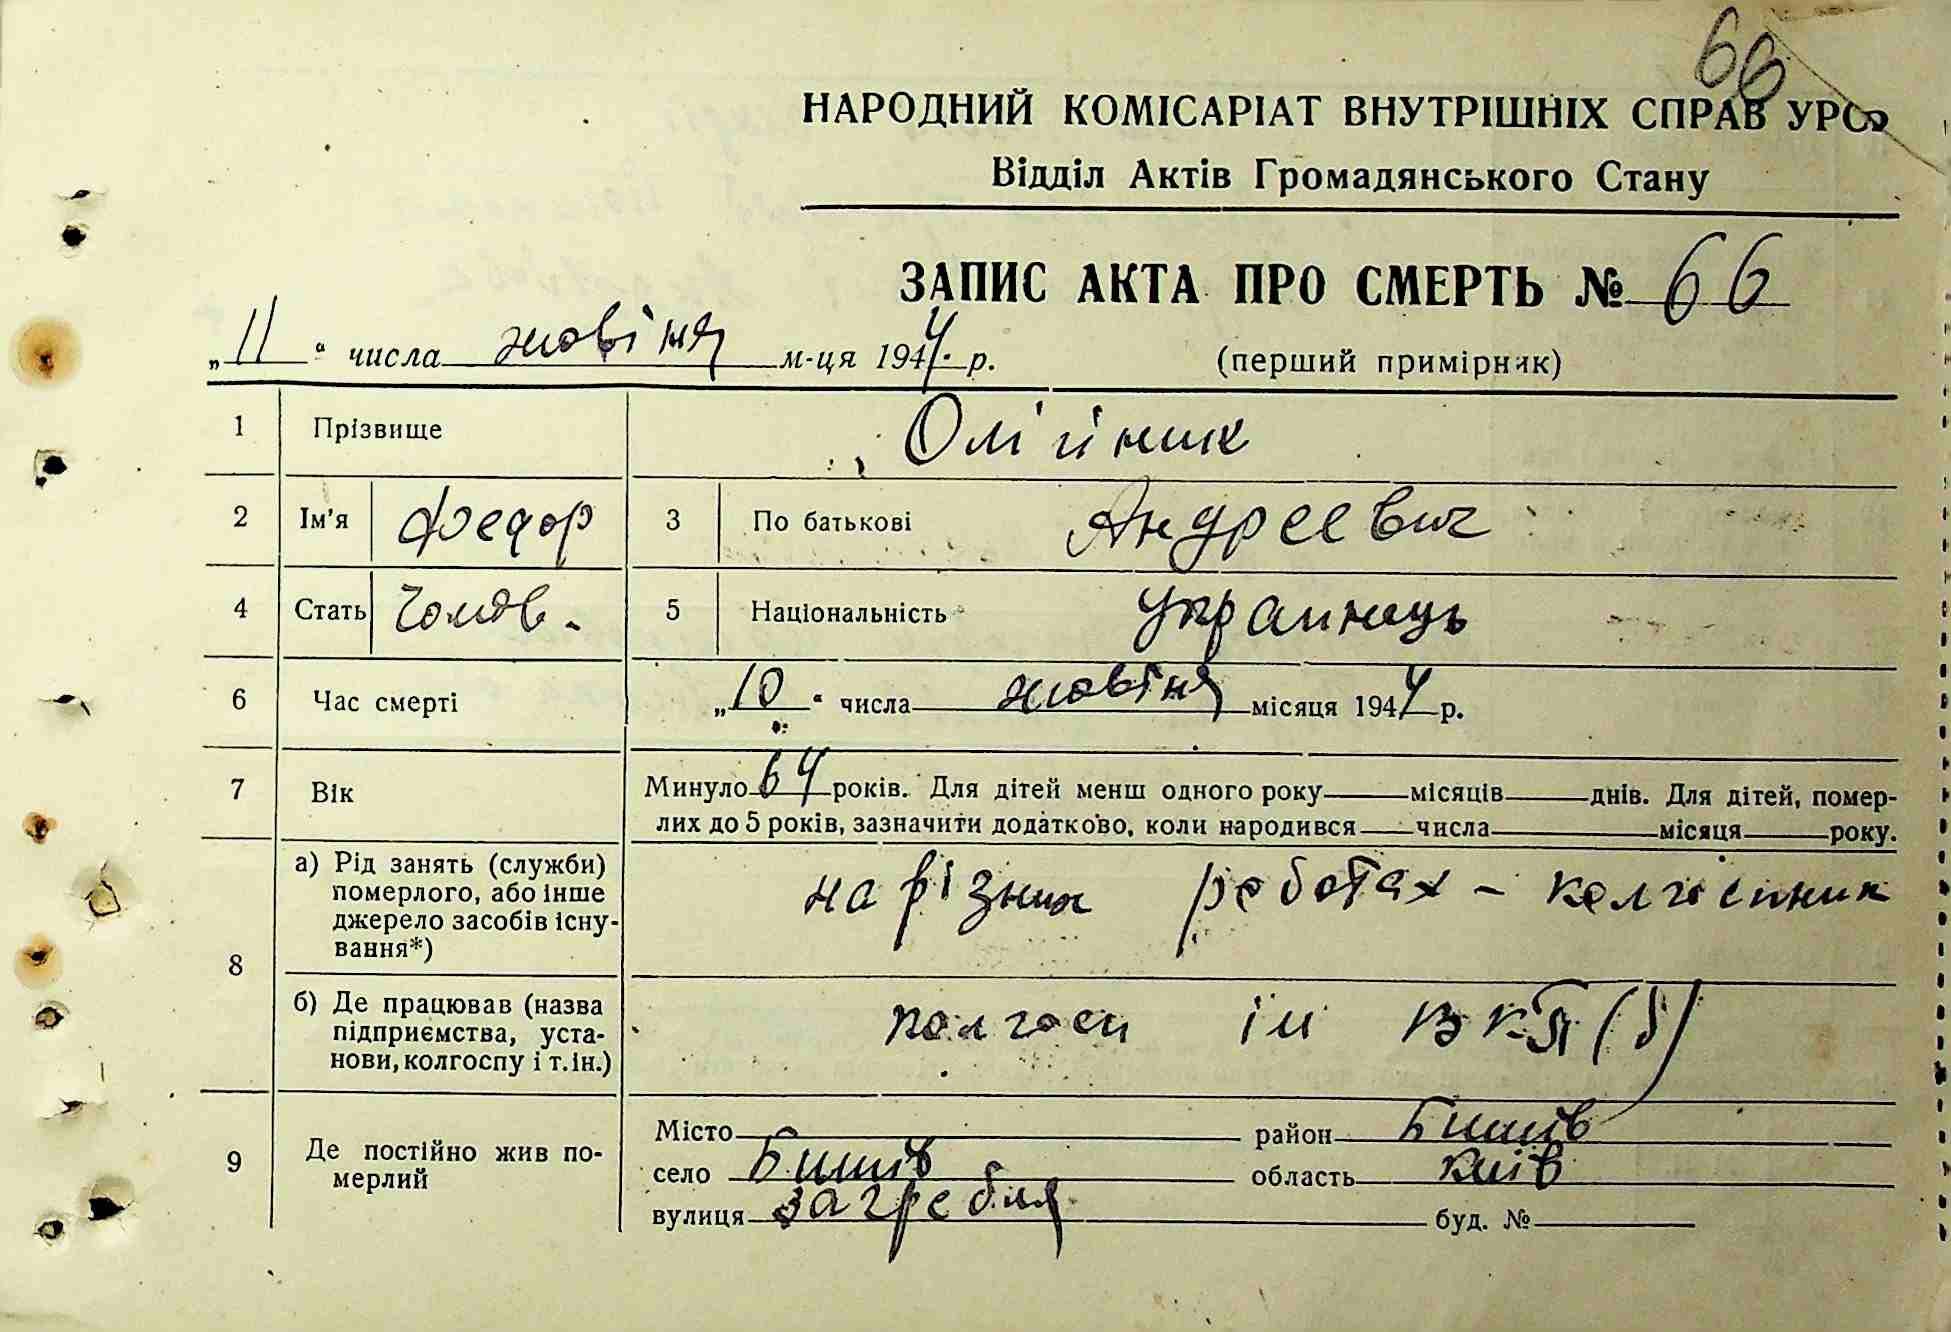 66
НАРОДНИЙ КОМІСАРІАТ ВНУТРІШНІХ СПРАВ УРСР
Відділ Актів Громадянського Стану
ЗАПИС АКТА ПРО СМЕРТЬ № 66
„11“ числа жовтня м-ця 1944 р. (перший примірник)
1 Прізвище Олійник
2 Ім'я Федор 3 По батькові Андреевич
4 Стать Чолов. 5 Національність Украинець
6 Час смерті „10“ числа жовтня місяця 1944 р.
7 Вік Минуло 64 років. Для дітей менш одного року місяців днів. Для дітей, помер-
лих до 5 років, зазначити додатково, коли народився числа місяця року.
8 а) Рід занять (служби) померлого, або інше джерело засобів існу-вання*) на різних роботах – колгоспник
б) Де працював (назва підприємства, уста-нови, колгоспу і т. ін.) колгосп ім ВКП(б)
9 Де постійно жив по-мерлий Місто район Бишів
село Бишів область Київ
вулиця Загребля буд. №